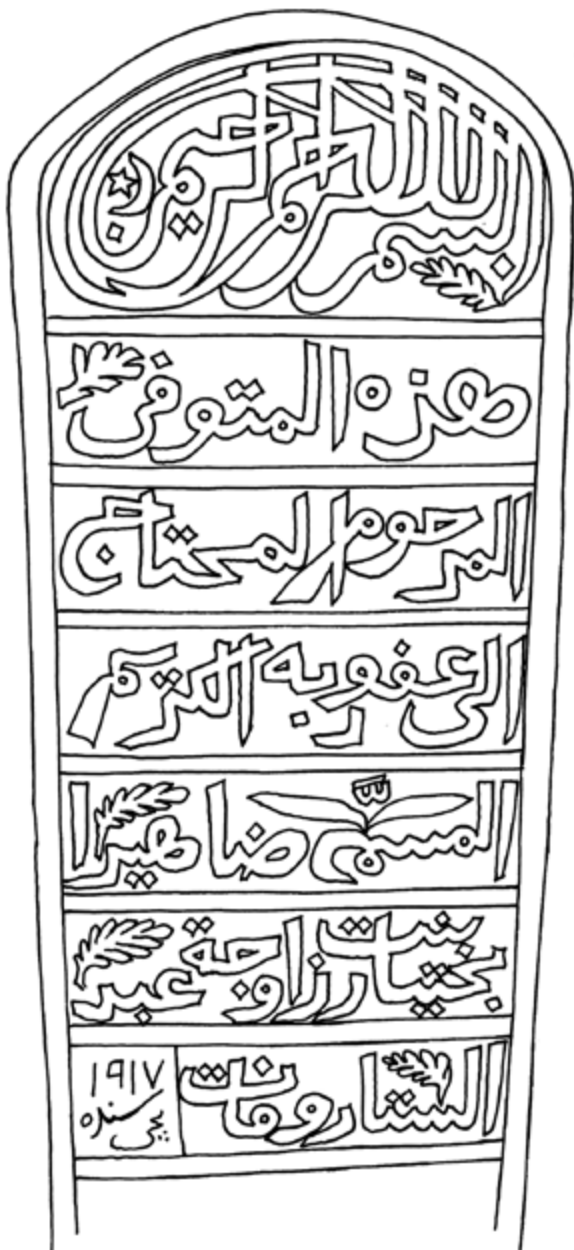 بسم الله الرحمن الرحيم
هذه المتوفى
المرحوم المحتاج
الى عفو ربه الكريم
المسمى ضاهيرا
بنت بختيار زاوجة عبد
الستار وفات ١٩١٧ سنده